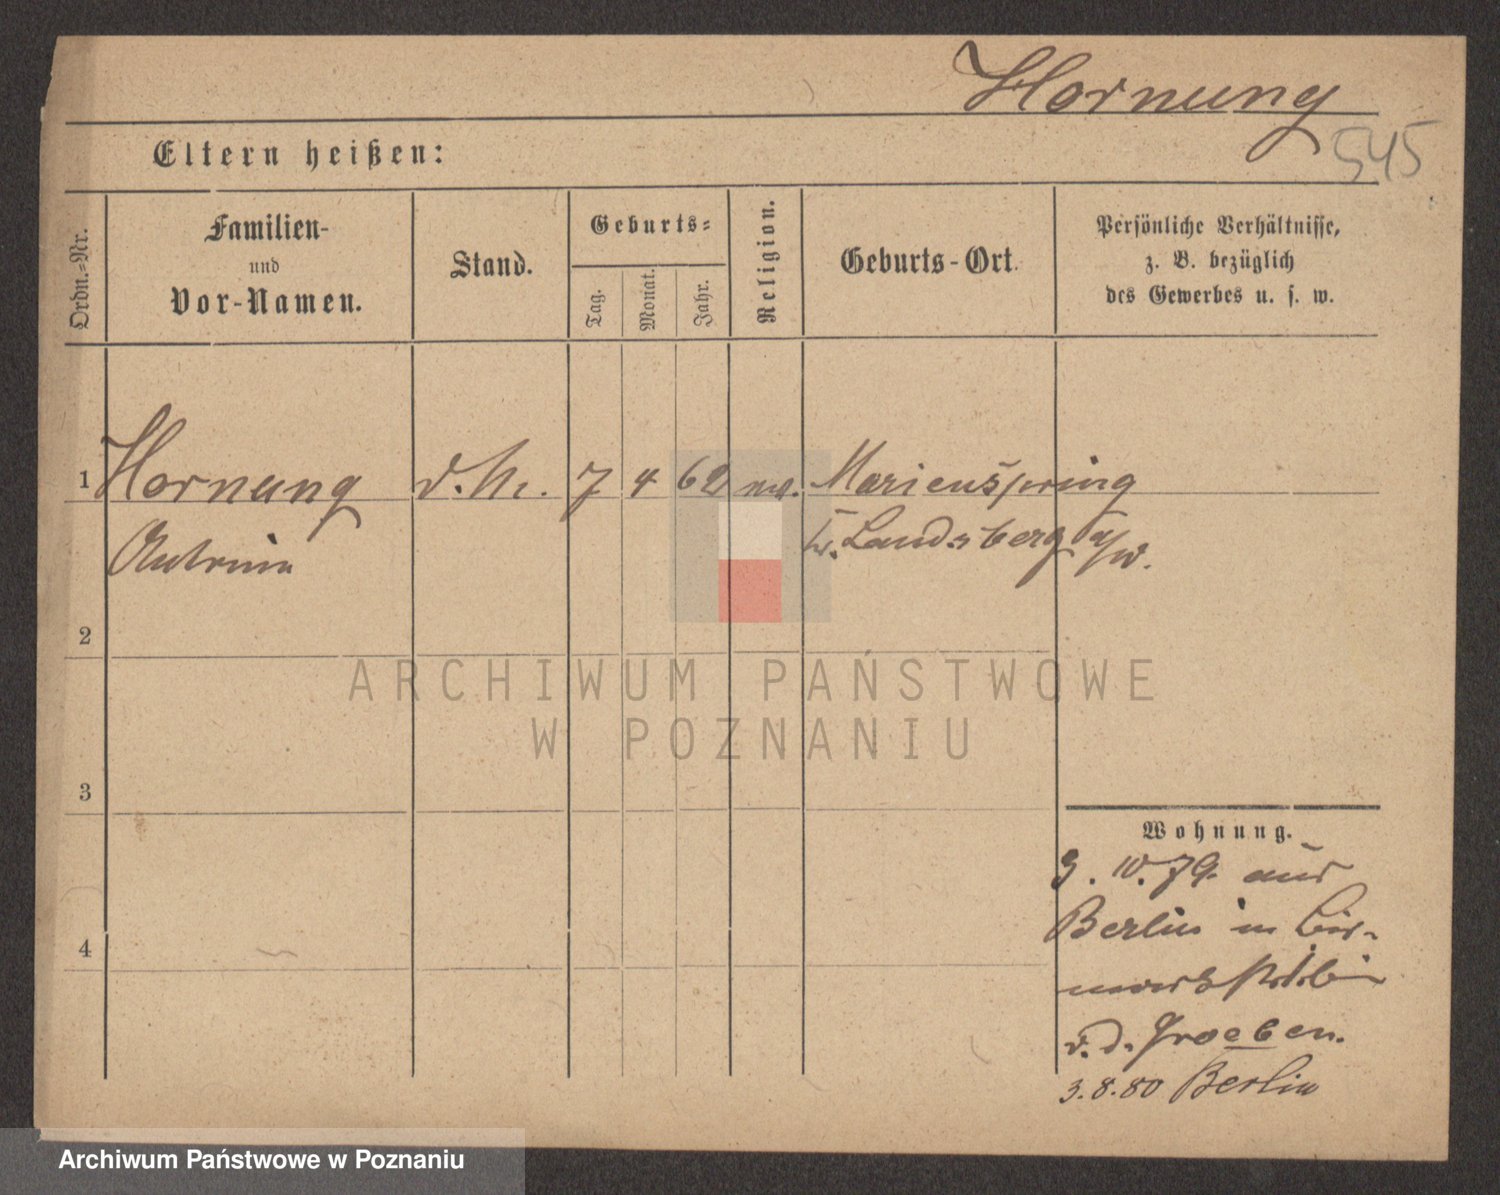 Hornung
545
Eltern heißen:
Ordn.-Nr.
Familien-
und
Vor-Namen.
Stand.
Geburts-
Tag.
Monat.
Jahr.
Religion.
Geburts-Ort.
Persönliche Verhältnisse,
z. B. bezüglich
des Gewerbes u. s. w.
1 Hornung 7 4 62 Marienspring
Landsberg a/W.
2
3
4
ARCHIWUM PAŃSTWOWE
W POZNANIU
Wohnung.
3. 10. 79. aus
Berlin in Bis-
v. d. Groeben.
3. 8. 80 Berlin
Archiwum Państwowe w Poznaniu